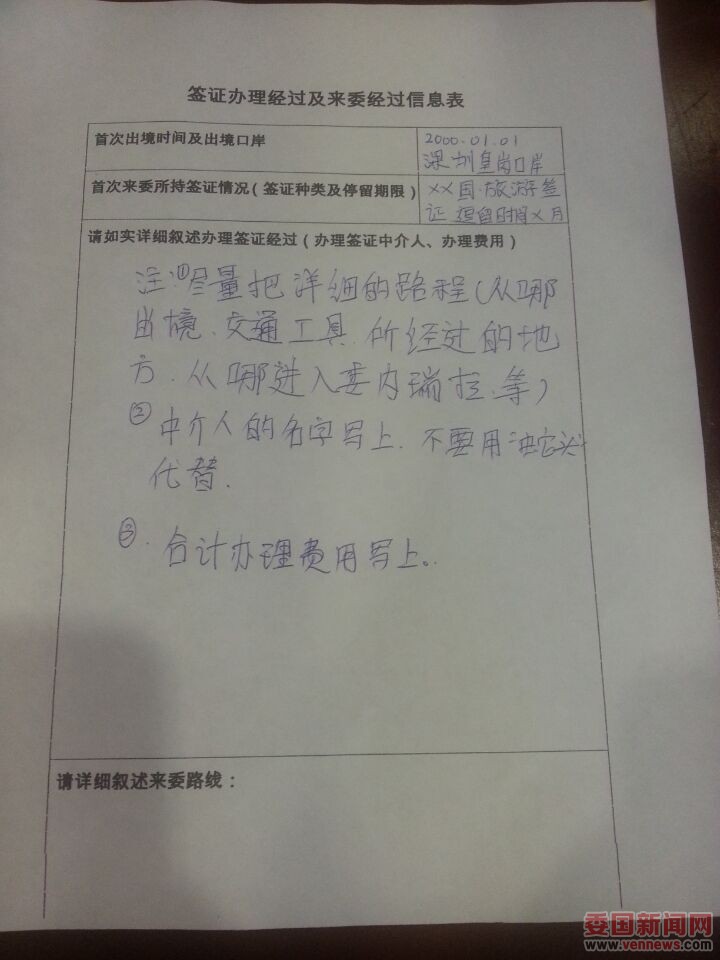 签证办理经过及来委经过信息表
首次出境时间及出境口岸
2000.01.01
深圳皇岗口岸
首次来委所持签证情况（签证种类及停留期限）
××国.旅游签
证 逗留时间×月
请如实详细叙述办理签证经过（办理签证中介人、办理费用）
注:①尽量把详细的路程(从哪
出境.交通工具.所经过的地
方.从哪进入委内瑞拉.等)
②中介人的名字写上.不要用"蛇头"
代替.
③.合计办理费用写上。
请详细叙述来委路线：
委国新闻网
www.vennews.com